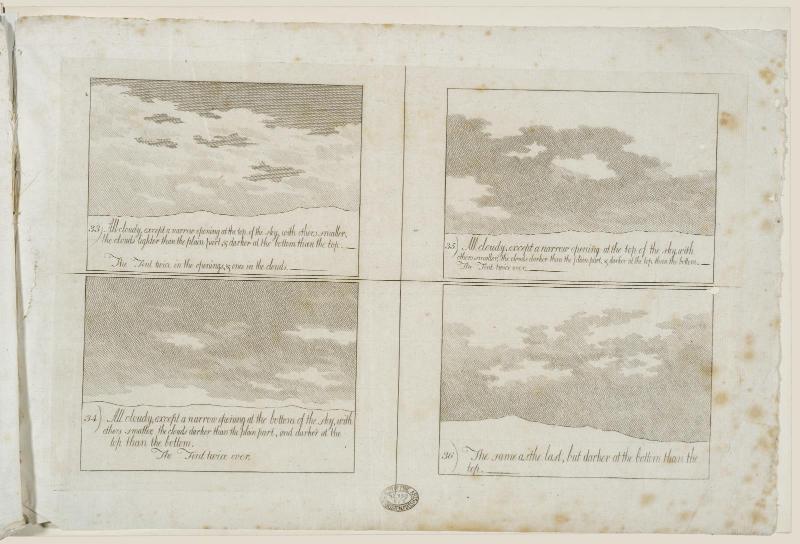 33) All cloudy, except a narrow opening at the top of the sky, with others smaller,
the clouds lighter than the plain part, & darker at the bottom than the top.
The Tint twice in the openings, & once in the clouds.
34) All cloudy, except a narrow opening at the bottom of the sky, with
others smaller, the clouds darker than the plain part, and darker at the
top than the bottom.
The Tint twice over.
35) All cloudy, except a narrow opening at the top of the sky, with
others smaller, the clouds darker than the plain part, & darker at the top than the bottom.
The Tint twice over.
36) The same as the last, but darker at the bottom than the
top.